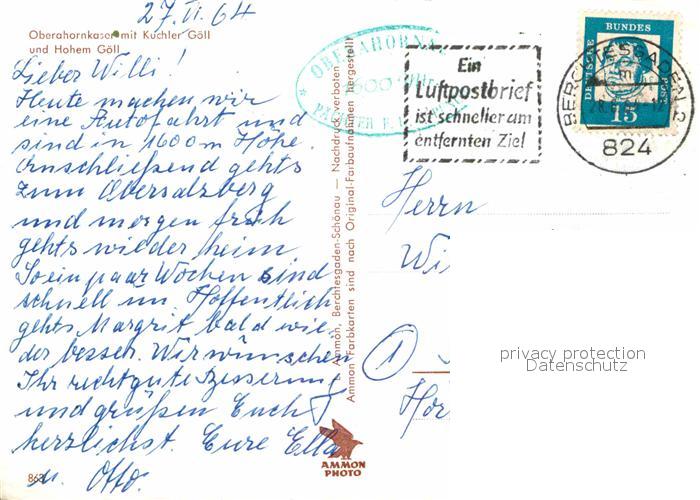 27.VI.64
Oberahornkaser mit Kuchler Göll
und Hohem Göll
Lieber Willi!
Heute machen wir
eine Autofahrt und
sind in 1600 m Höhe.
Anschließend gehts
zum Obersalzberg
und morgen früh
gehts wieder heim
So ein paar Wochen sind
schnell um. Hoffentlich
gehts Margrit bald wie-
der besser. Wir wünschen
Ihr recht gute Besserung
und grüßen Euch
herzlichst. Eure Ella
u. Otto.
AMMON
PHOTO
Ammon, Berchtesgaden-Schönau — Nachdruck verboten
Ammon Farbkarten sind nach Original-Farbaufnahmen hergestellt
Ein
Luftpostbrief
ist schneller am
entfernten Ziel
DEUTSCHE
BUNDES
POST
15
BERCHTESGADEN 2
824
Herrn
Wi
privacy protection
Datenschutz